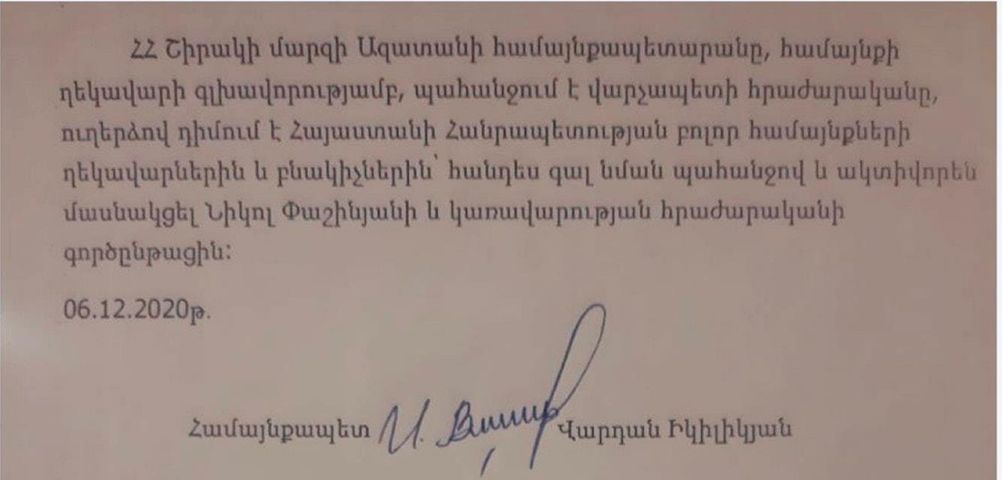 ՀՀ Շիրակի մարզի Ազատանի համայնքապետարանը, համայնքի
ղեկավարի գլխավորությամբ, պահանջում է վարչապետի հրաժարականը,
ուղերձով դիմում է Հայաստանի Հանրապետության բոլոր համայնքների
ղեկավարներին և բնակիչներին՝ հանդես գալ նման պահանջով և ակտիվորեն
մասնակցել Նիկոլ Փաշինյանի և կառավարության հրաժարականի
գործընթացին:
06.12.2020թ.
Համայնքապետ Վարդան Իկիլիկյան